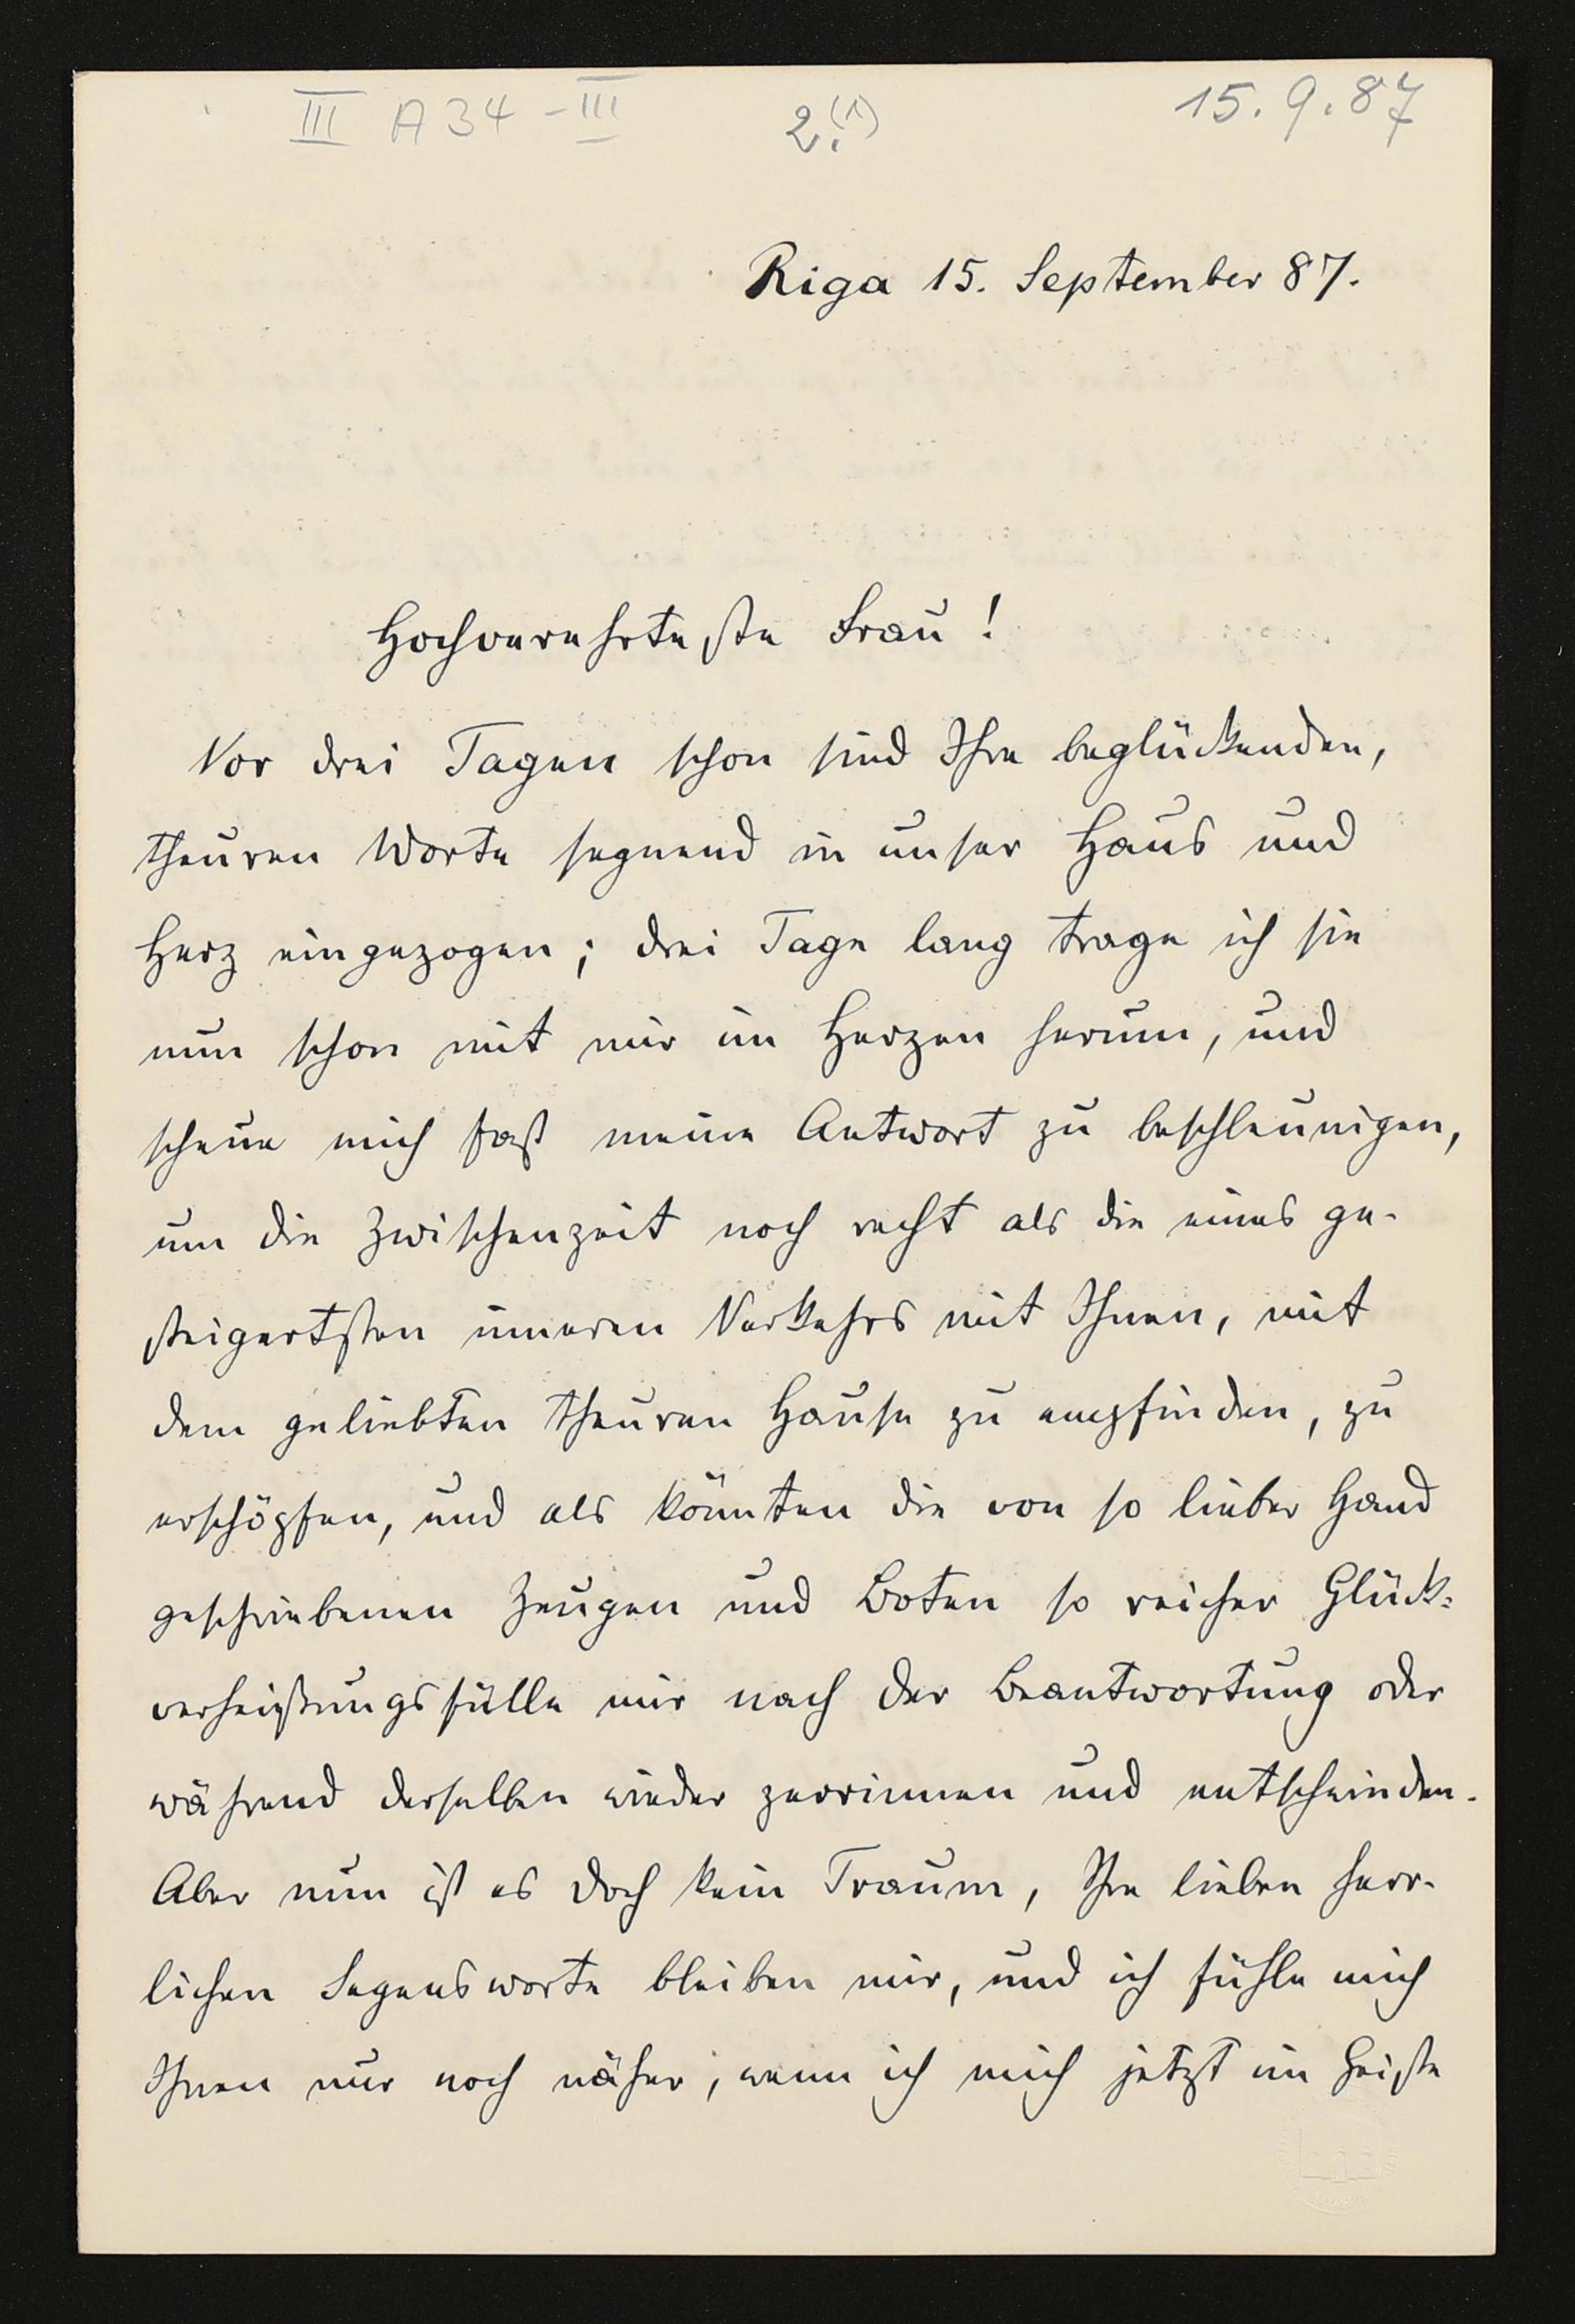 III A 34 - III
2.(1)
15.9.87
Riga 15. September 87.
Hochverehrteste Frau!
Vor drei Tagen schon sind Ihre beglückenden,
theuren Worte segnend in unser Haus und
Herz eingezogen; drei Tage lang trage ich sie
nun schon mit mir im Herzen herum, und
scheue mich fast meine Antwort zu beschleunigen,
um die Zwischenzeit noch recht als die eines ge-
steigertsten inneren Verkehrs mit Ihnen, mit
dem geliebten theuren Hause zu empfinden, zu
erschöpfen, und als könnten die von so lieber Hand
geschriebenen Zeugen und Boten so reicher Glück-
verheißungsfülle mir nach der Beantwortung oder
während derselben wieder zerrinnen und entschwinden.
Aber nun ist es doch kein Traum, Ihre lieben herr-
lichen Segensworte bleiben mir, und ich fühle mich
Ihnen nur noch näher, wenn ich mich jetzt im Geiste